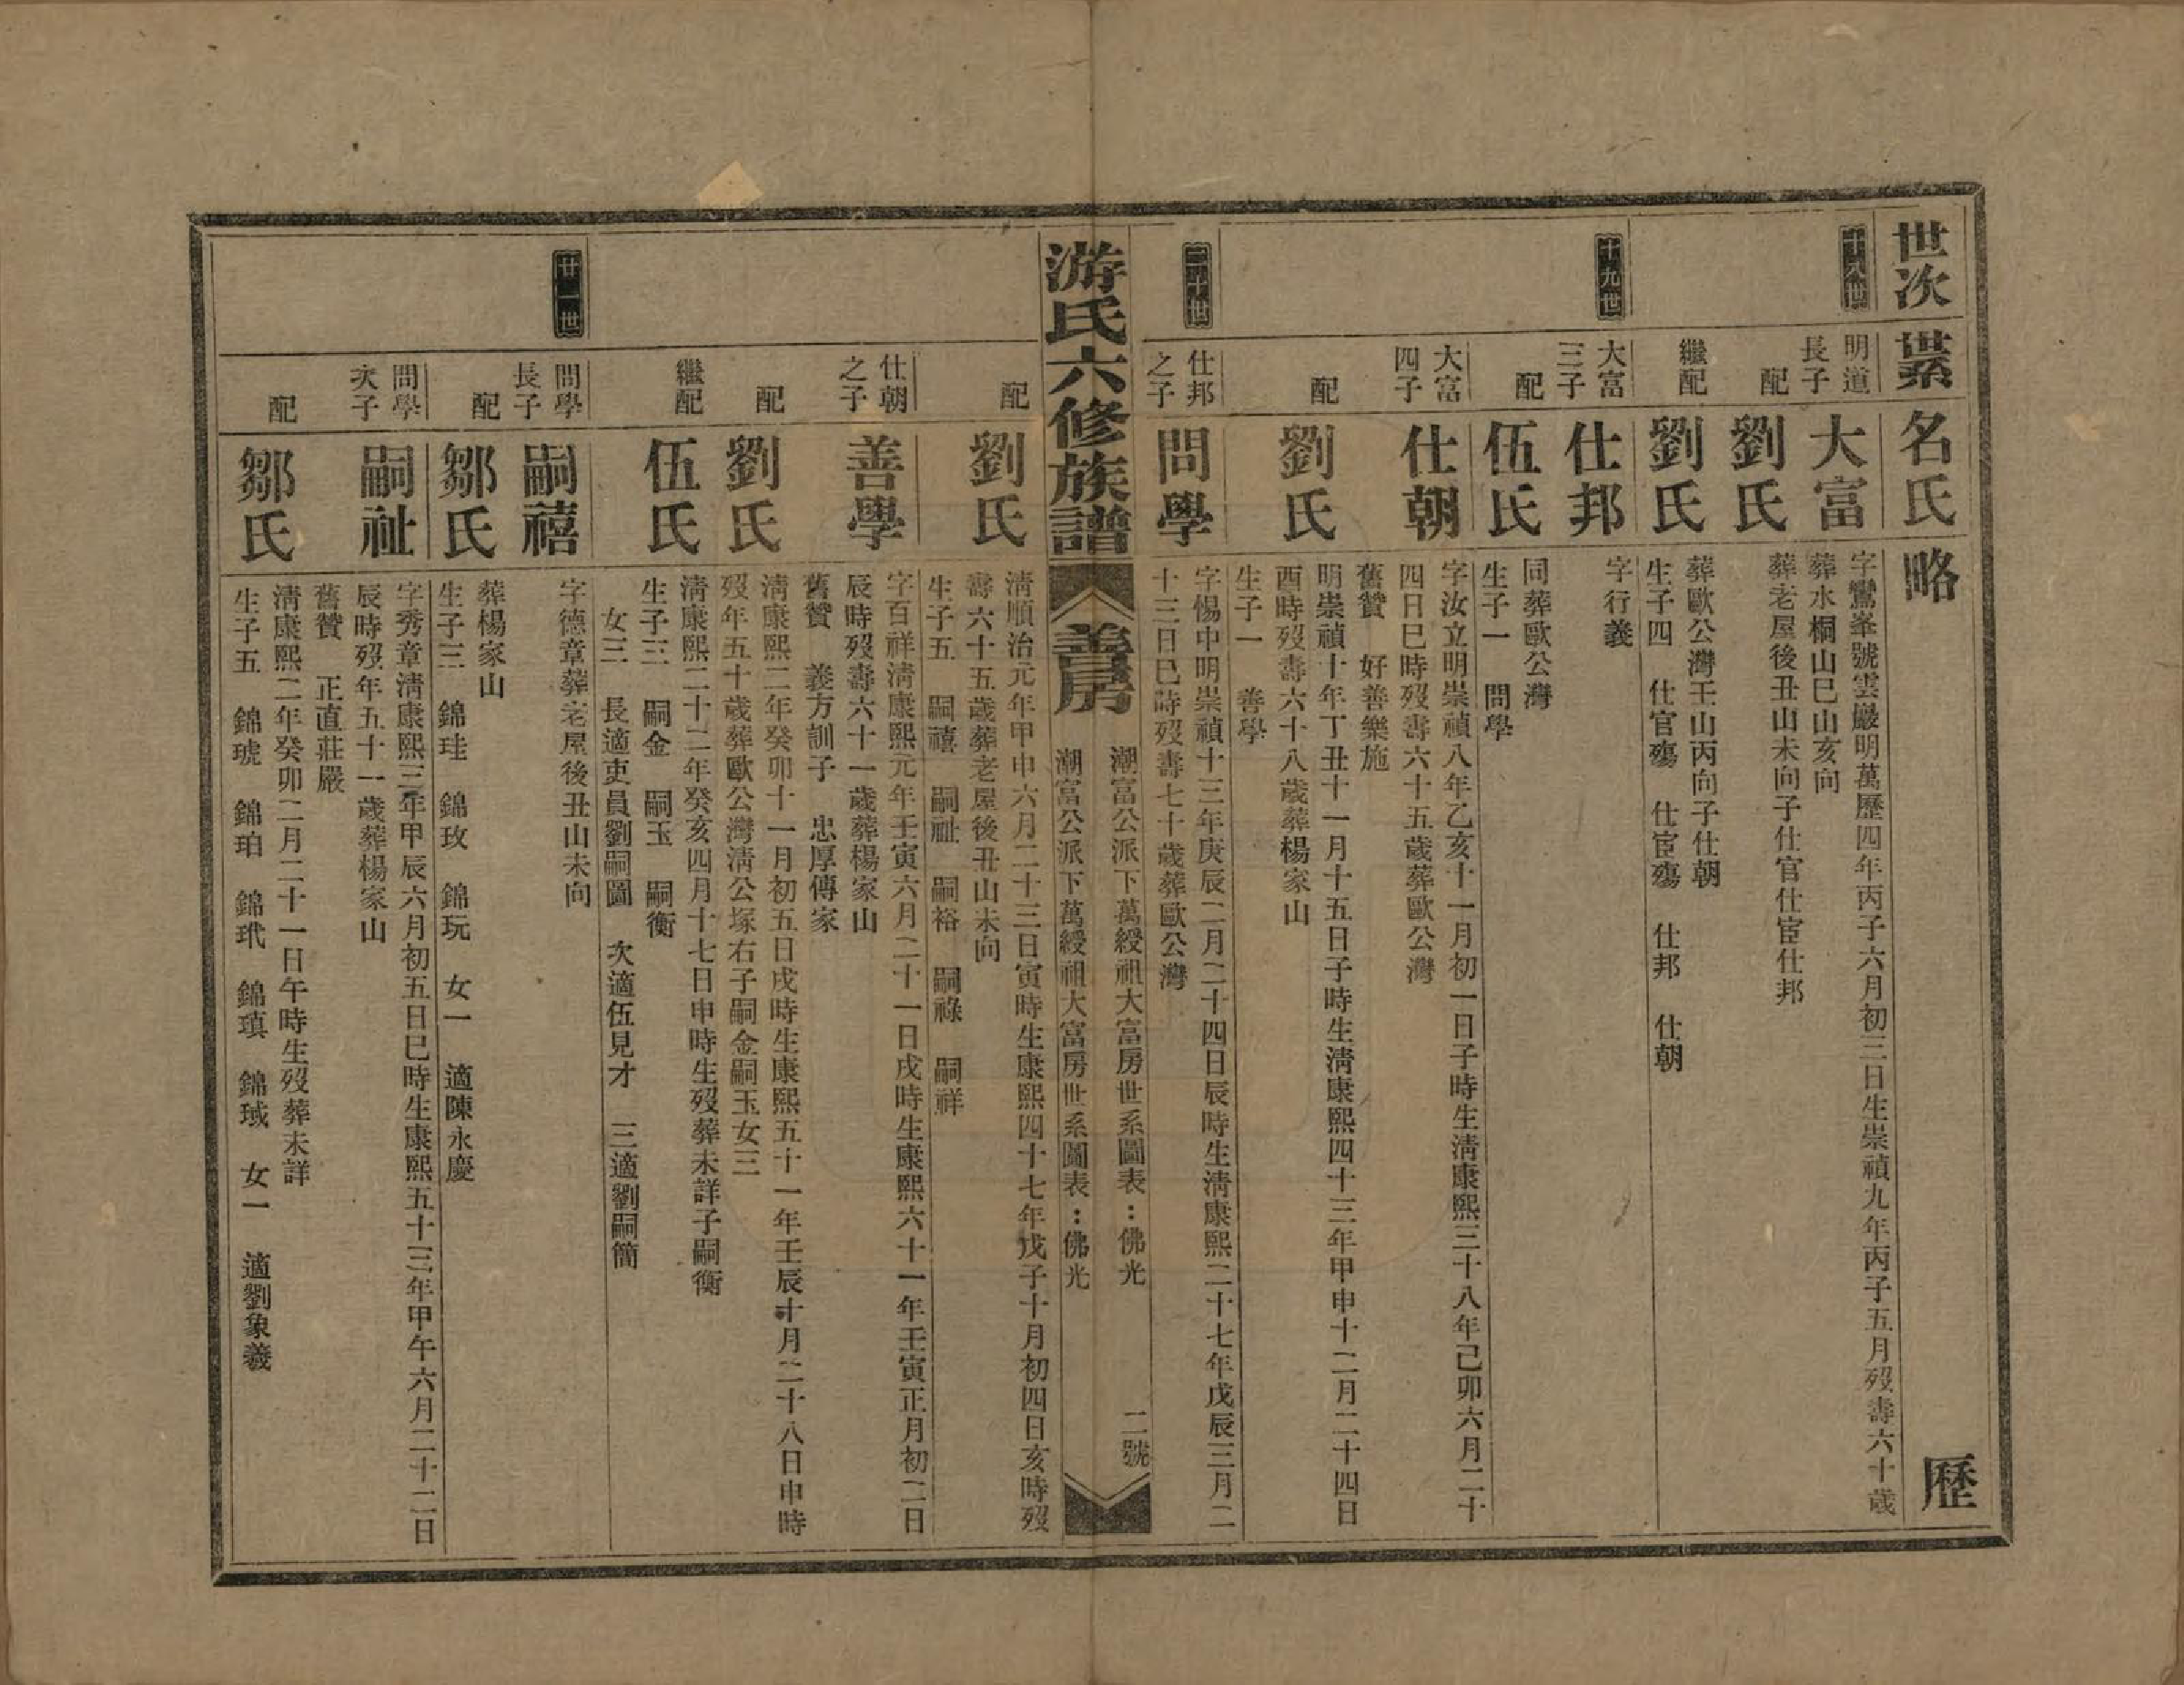 世次
世系
名氏
略
歷
十八世
明道長子
大富
字鸞峯號雲巖明萬歷四年丙子六月初三日生崇禎九年丙子五月歿壽六十歲
葬水桐山巳山亥向
配
劉氏
葬老屋後丑山未向子仕官仕宦仕邦
繼配
劉氏
葬歐公灣壬山丙向子仕朝
生子四 仕官殤 仕宦殤 仕邦 仕朝
十九世
大富三子
仕邦
字行義
配
伍氏
同葬歐公灣
生子一 問學
大富四子
仕朝
字汝立明崇禎八年乙亥十一月初一日子時生淸康熙三十八年己卯六月二十
四日巳時歿壽六十五歲葬歐公灣
舊贊 好善樂施
配
劉氏
明崇禎十年丁丑十一月十五日子時生淸康熙四十三年甲申十二月二十四日
酉時歿壽六十八歲葬楊家山
生子一 善學
二十世
仕邦之子
問學
字惕中明崇禎十三年庚辰二月二十四日辰時生淸康熙二十七年戊辰三月二
十三日巳時歿壽七十歲葬歐公灣
游氏六修族譜
善房
潮富公派下萬綬祖大富房世系圖表：佛光
潮富公派下萬綬祖大富房世系圖表：佛光
二號
配
劉氏
淸順治元年甲申六月二十三日寅時生康熙四十七年戊子十月初四日亥時歿
壽六十五歲葬老屋後丑山未向
生子五 嗣禧 嗣祉 嗣裕 嗣祿 嗣祥
仕朝之子
善學
字百祥淸康熙元年壬寅六月二十一日戌時生康熙六十一年壬寅正月初二日
辰時歿壽六十一歲葬楊家山
舊贊 義方訓子 忠厚傳家
配
劉氏
淸康熙二年癸卯十一月初五日戌時生康熙五十一年壬辰十月二十八日申時
歿年五十歲葬歐公灣淸公塚右子嗣金嗣玉女三
繼配
伍氏
淸康熙二十二年癸亥四月十七日申時生歿葬未詳子嗣衡
生子三 嗣金 嗣玉 嗣衡
女三 長適吏員劉嗣圖 次適伍見才 三適劉嗣簡
廿一世
問學長子
嗣禧
字德章葬老屋後丑山未向
配
鄒氏
葬楊家山
生子三 錦珪 錦玫 錦玩 女一 適陳永慶
問學次子
嗣祉
字秀章淸康熙三年甲辰六月初五日巳時生康熙五十三年甲午六月二十二日
辰時歿年五十一歲葬楊家山
舊贊 正直莊嚴
配
鄒氏
淸康熙二年癸卯二月二十一日午時生歿葬未詳
生子五 錦琥 錦珀 錦玳 錦瑱 錦琙 女一 適劉象羲